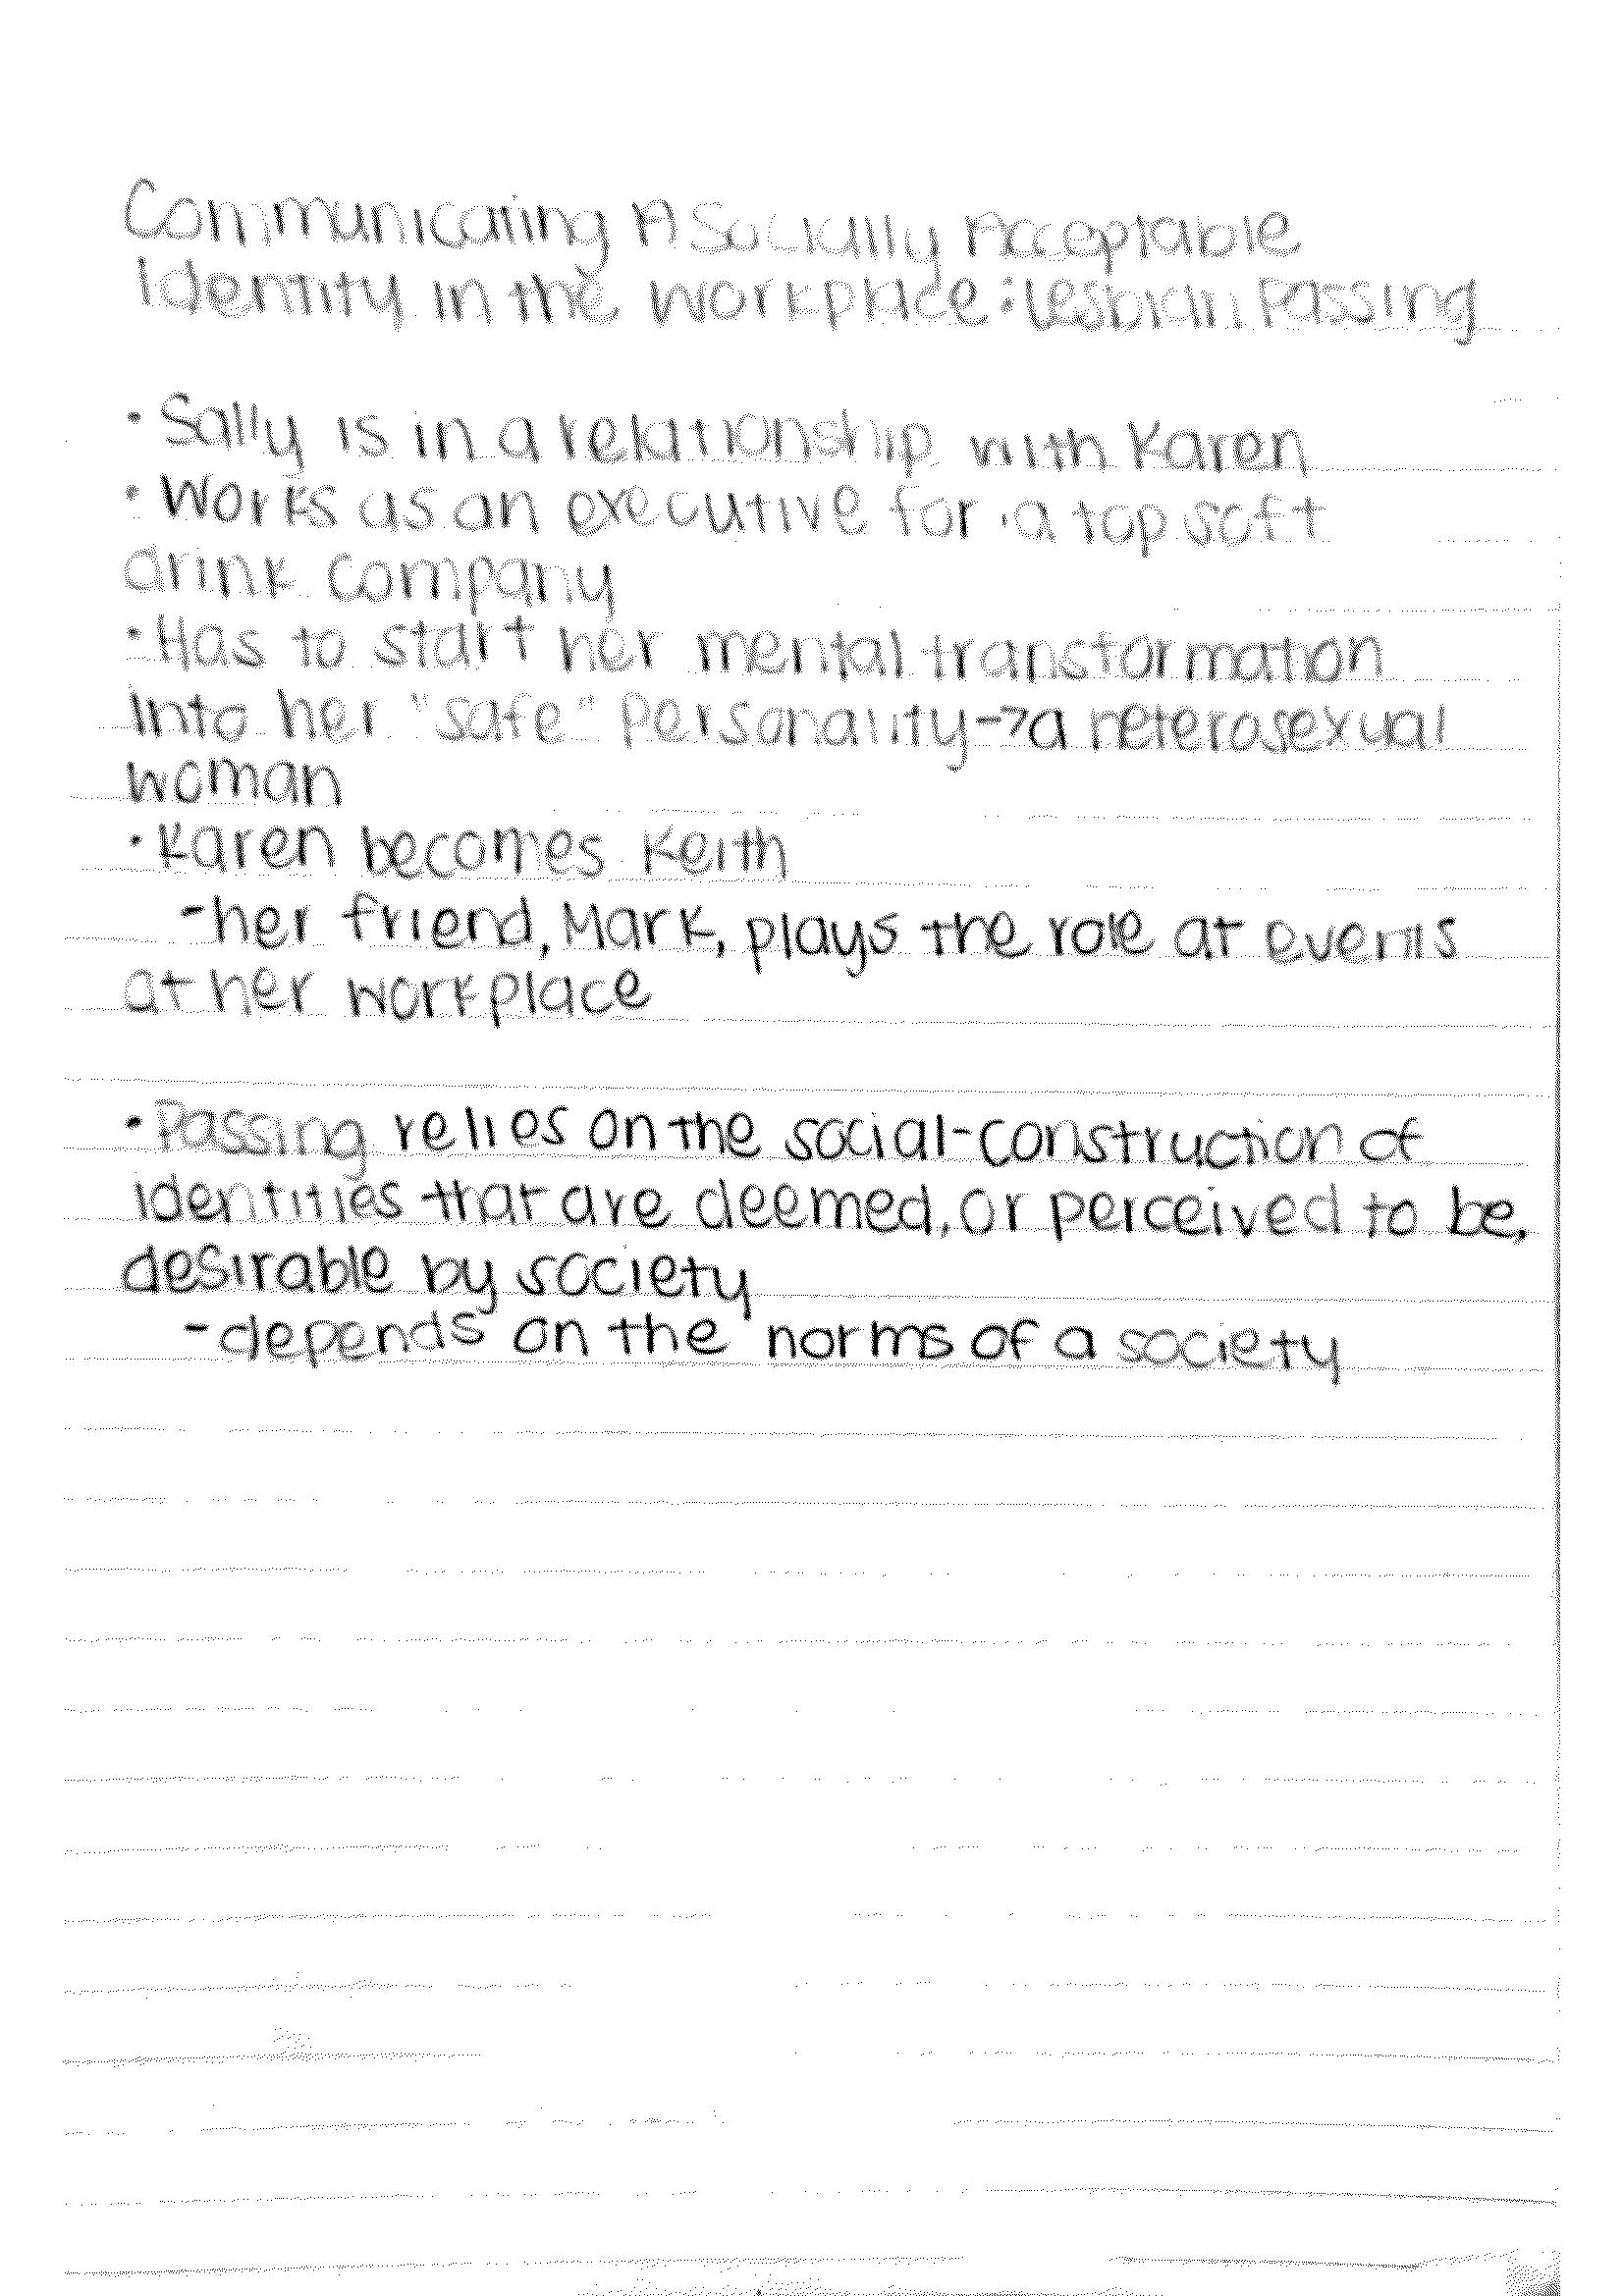 Communicating A Socially Acceptable
Identity in the workplace: Lesbian Passing
• Sally is in a relationship with Karen
• Works as an executive for a top soft
drink company
• Has to start her mental transformation
into her "safe" personality → a heterosexual
woman
• Karen becomes Keith
- her friend, Mark, plays the role at events
at her workplace
• Passing relies on the social-construction of
identities that are deemed, or perceived to be,
desirable by society
- depends on the norms of a society